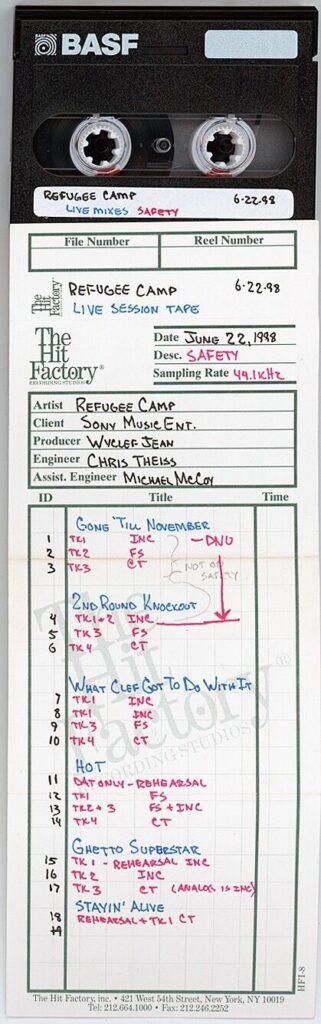 BASF
REFUGEE CAMP 6-22-98
LIVE MIXES SAFETY
File Number Reel Number
The Hit Factory REFUGEE CAMP 6-22-98
LIVE SESSION TAPE
The Hit Factory®
RECORDING STUDIOS
Date JUNE 22, 1998
Desc. SAFETY
Sampling Rate 44.1KHz
Artist REFUGEE CAMP
Client SONY MUSIC ENT.
Producer WYCLEF JEAN
Engineer CHRIS THEISS
Assist. Engineer MICHAEL MCCOY
ID Title Time
GONE 'TILL NOVEMBER
1 TK1 INC - DNU
2 TK2 FS
3 TK3 CT
NOT ON SAFETY
2ND ROUND KNOCKOUT
4 TK1+2 INC
5 TK3 FS
6 TK4 CT
WHAT CLEF GOT TO DO WITH IT
7 TK1 INC
8 TK1 INC
9 TK3 FS
10 TK4 CT
HOT
11 DAT ONLY - REHEARSAL
12 TK1 FS
13 TK2+3 FS + INC
14 TK4 CT
GHETTO SUPERSTAR
15 TK1 - REHEARSAL INC
16 TK2 INC
17 TK3 CT (ANALOG IS INC)
STAYIN' ALIVE
18 REHEARSAL + TK1 CT
19
The Hit Factory®
RECORDING STUDIOS
HF1-8
The Hit Factory, inc. • 421 West 54th Street, New York, NY 10019
Tel: 212.664.1000 • Fax: 212.246.2252